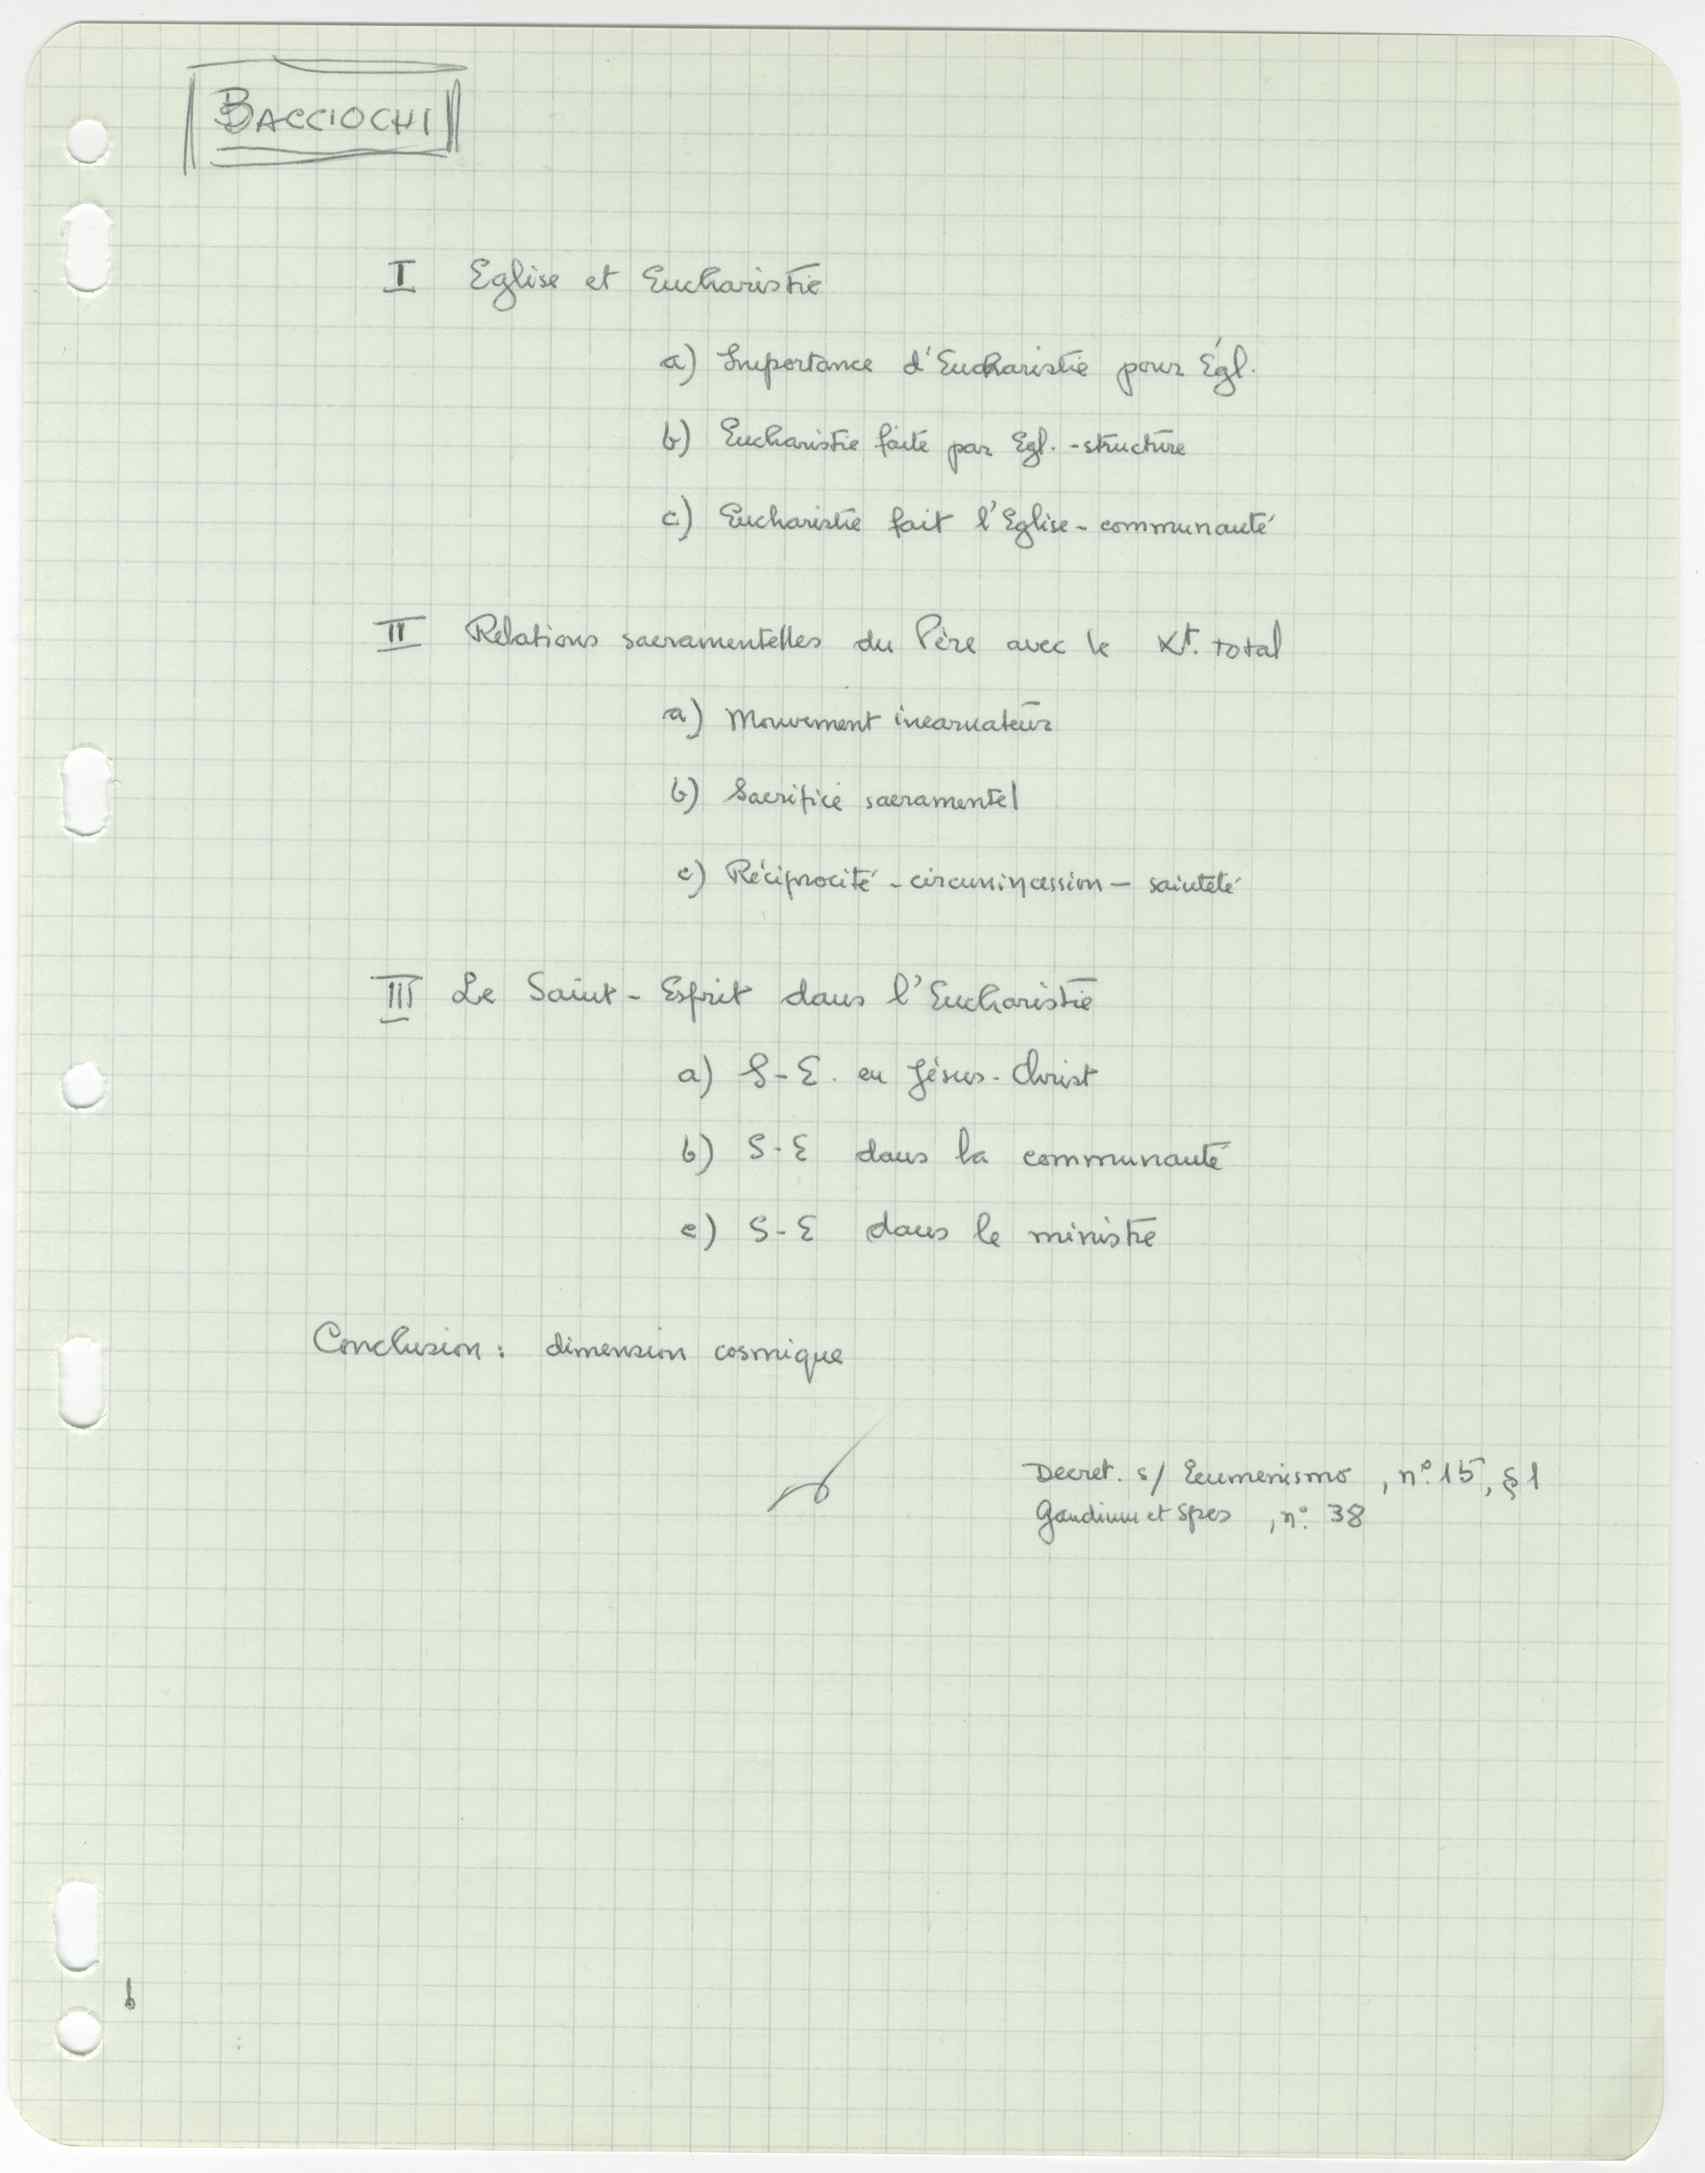 BACCIOCHI
I Eglise et Eucharistie
a) Importance d'Eucharistie pour Égl.
b) Eucharistie faite par Egl. - structure
c) Eucharistie fait l'Eglise - communauté
II Relations sacramentelles du Père avec le Xt. total
a) Mouvement incarnateur
b) Sacrifice sacramentel
c) Réciprocité - circumincession - sainteté
III Le Saint-Esprit dans l'Eucharistie
a) S-E. en Jésus-Christ
b) S-E dans la communauté
c) S-E dans le ministre
Conclusion : dimension cosmique
Decret. s/ Ecumenismo, nº 15, § 1
Gaudium et Spes, nº 38